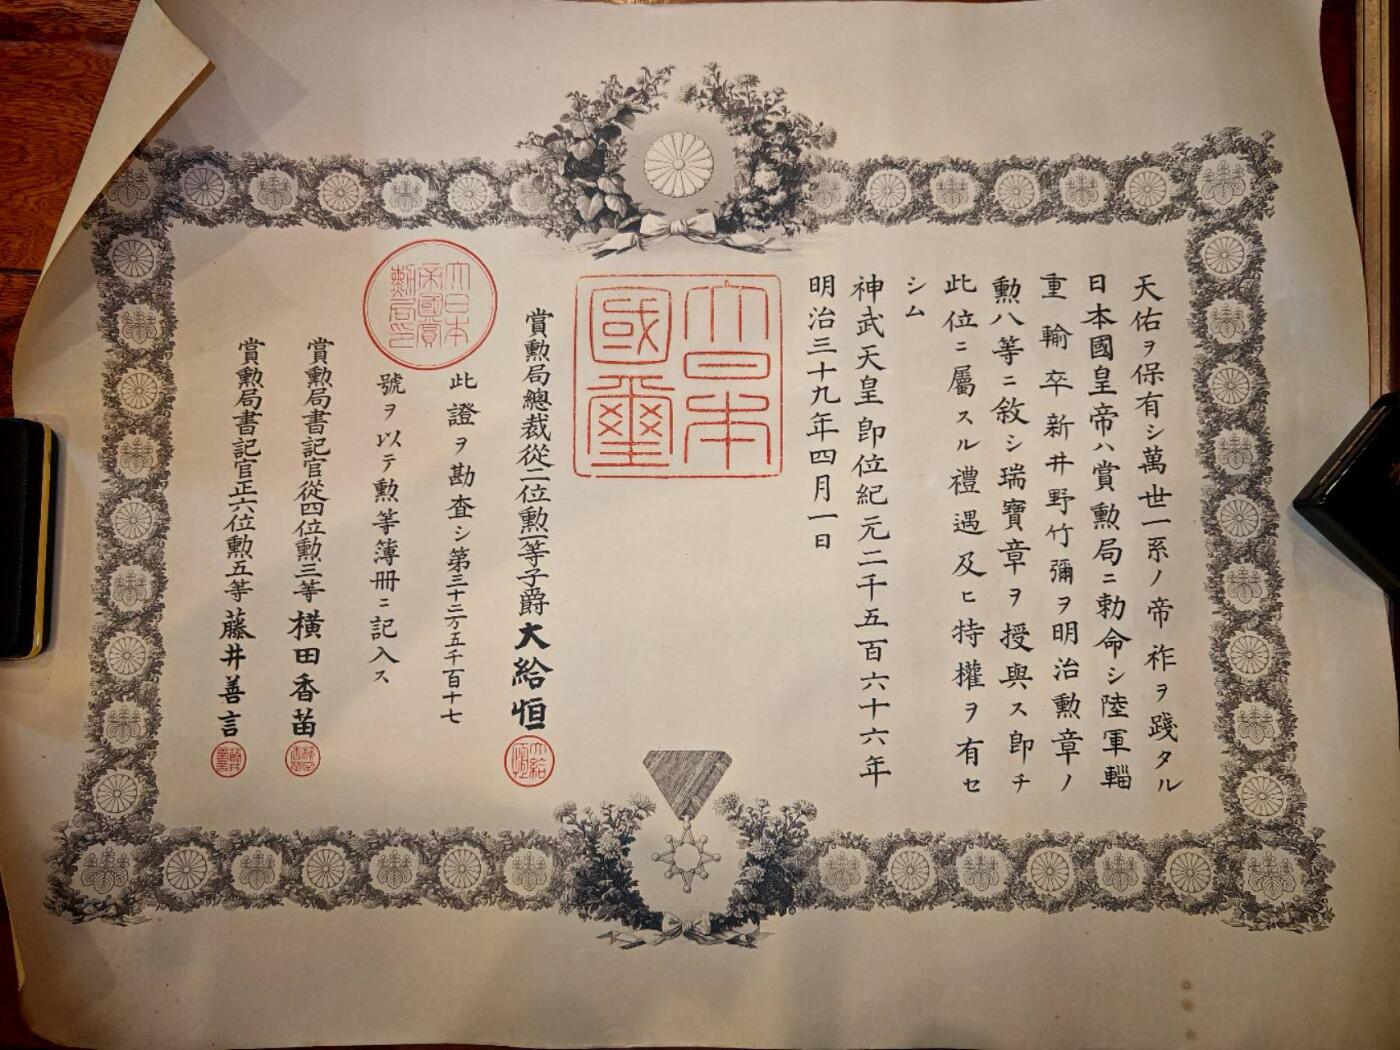 天佑ヲ保有シ萬世一系ノ帝祚ヲ踐タル
日本國皇帝ハ賞勲局ニ勅命シ陸軍輜
重輸卒新井野竹彌ヲ明治勲章ノ
勲八等ニ敘シ瑞寶章ヲ授與ス即チ
此位ニ屬スル禮遇及ヒ特權ヲ有セ
シム
神武天皇即位紀元二千五百六十六年
明治三十九年四月一日
大日本
國璽
賞勲局總裁從二位勲一等子爵大給恒
大給
恒
此證ヲ勘査シ第三十二万五千百十七
號ヲ以テ勲等簿册ニ記入ス
大日本
帝國賞
勲局印
賞勲局書記官從四位勲三等橫田香苗
賞勲局書記官正六位勲五等藤井善言